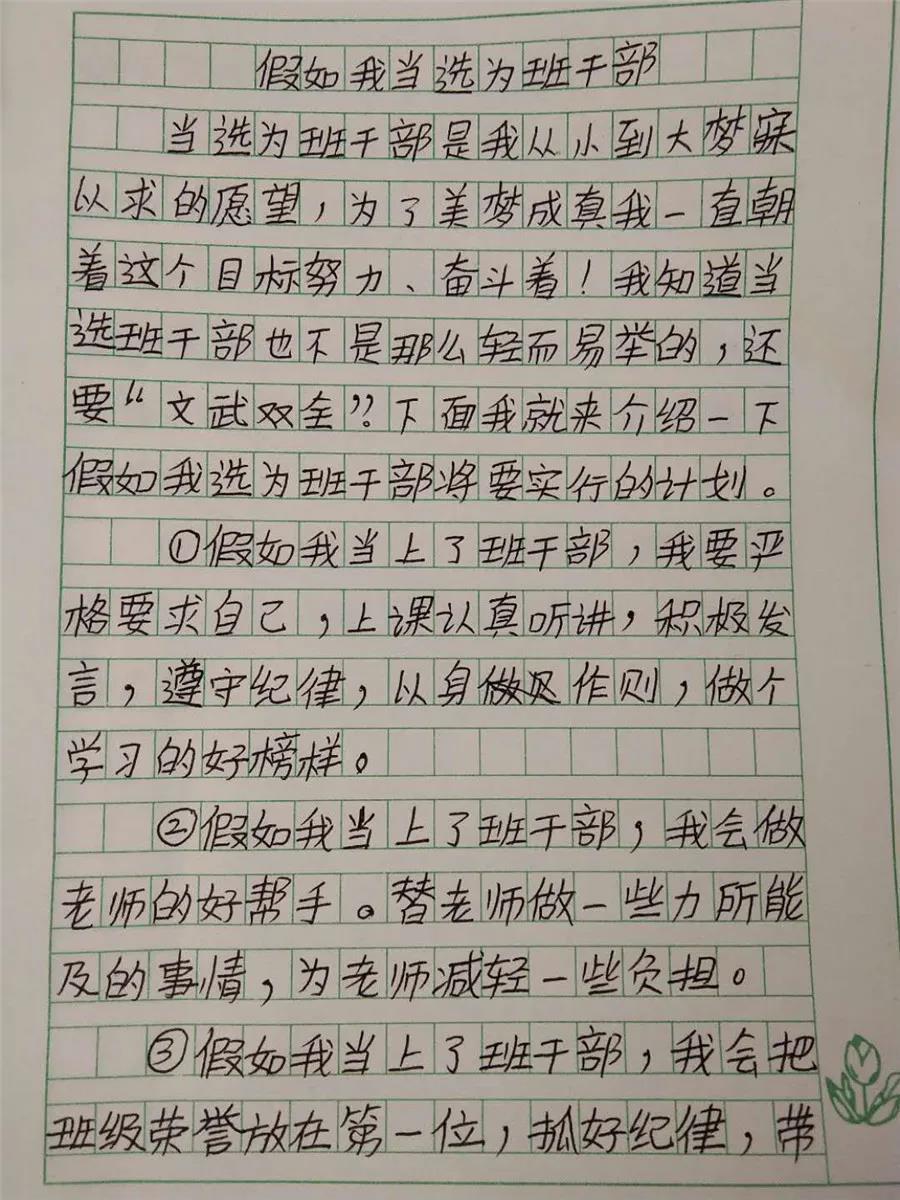 假如我当选为班干部
当选为班干部是我从小到大梦寐
以求的愿望，为了美梦成真我一直朝
着这个目标努力、奋斗着！我知道当
选班干部也不是那么轻而易举的，还
要“文武双全”？下面我就来介绍一下
假如我选为班干部将要实行的计划。
①假如我当上了班干部，我要严
格要求自己，上课认真听讲，积极发
言，遵守纪律，以身作则，做个
学习的好榜样。
②假如我当上了班干部，我会做
老师的好帮手。替老师做一些力所能
及的事情，为老师减轻一些负担。
③假如我当上了班干部，我会把
班级荣誉放在第一位，抓好纪律，带